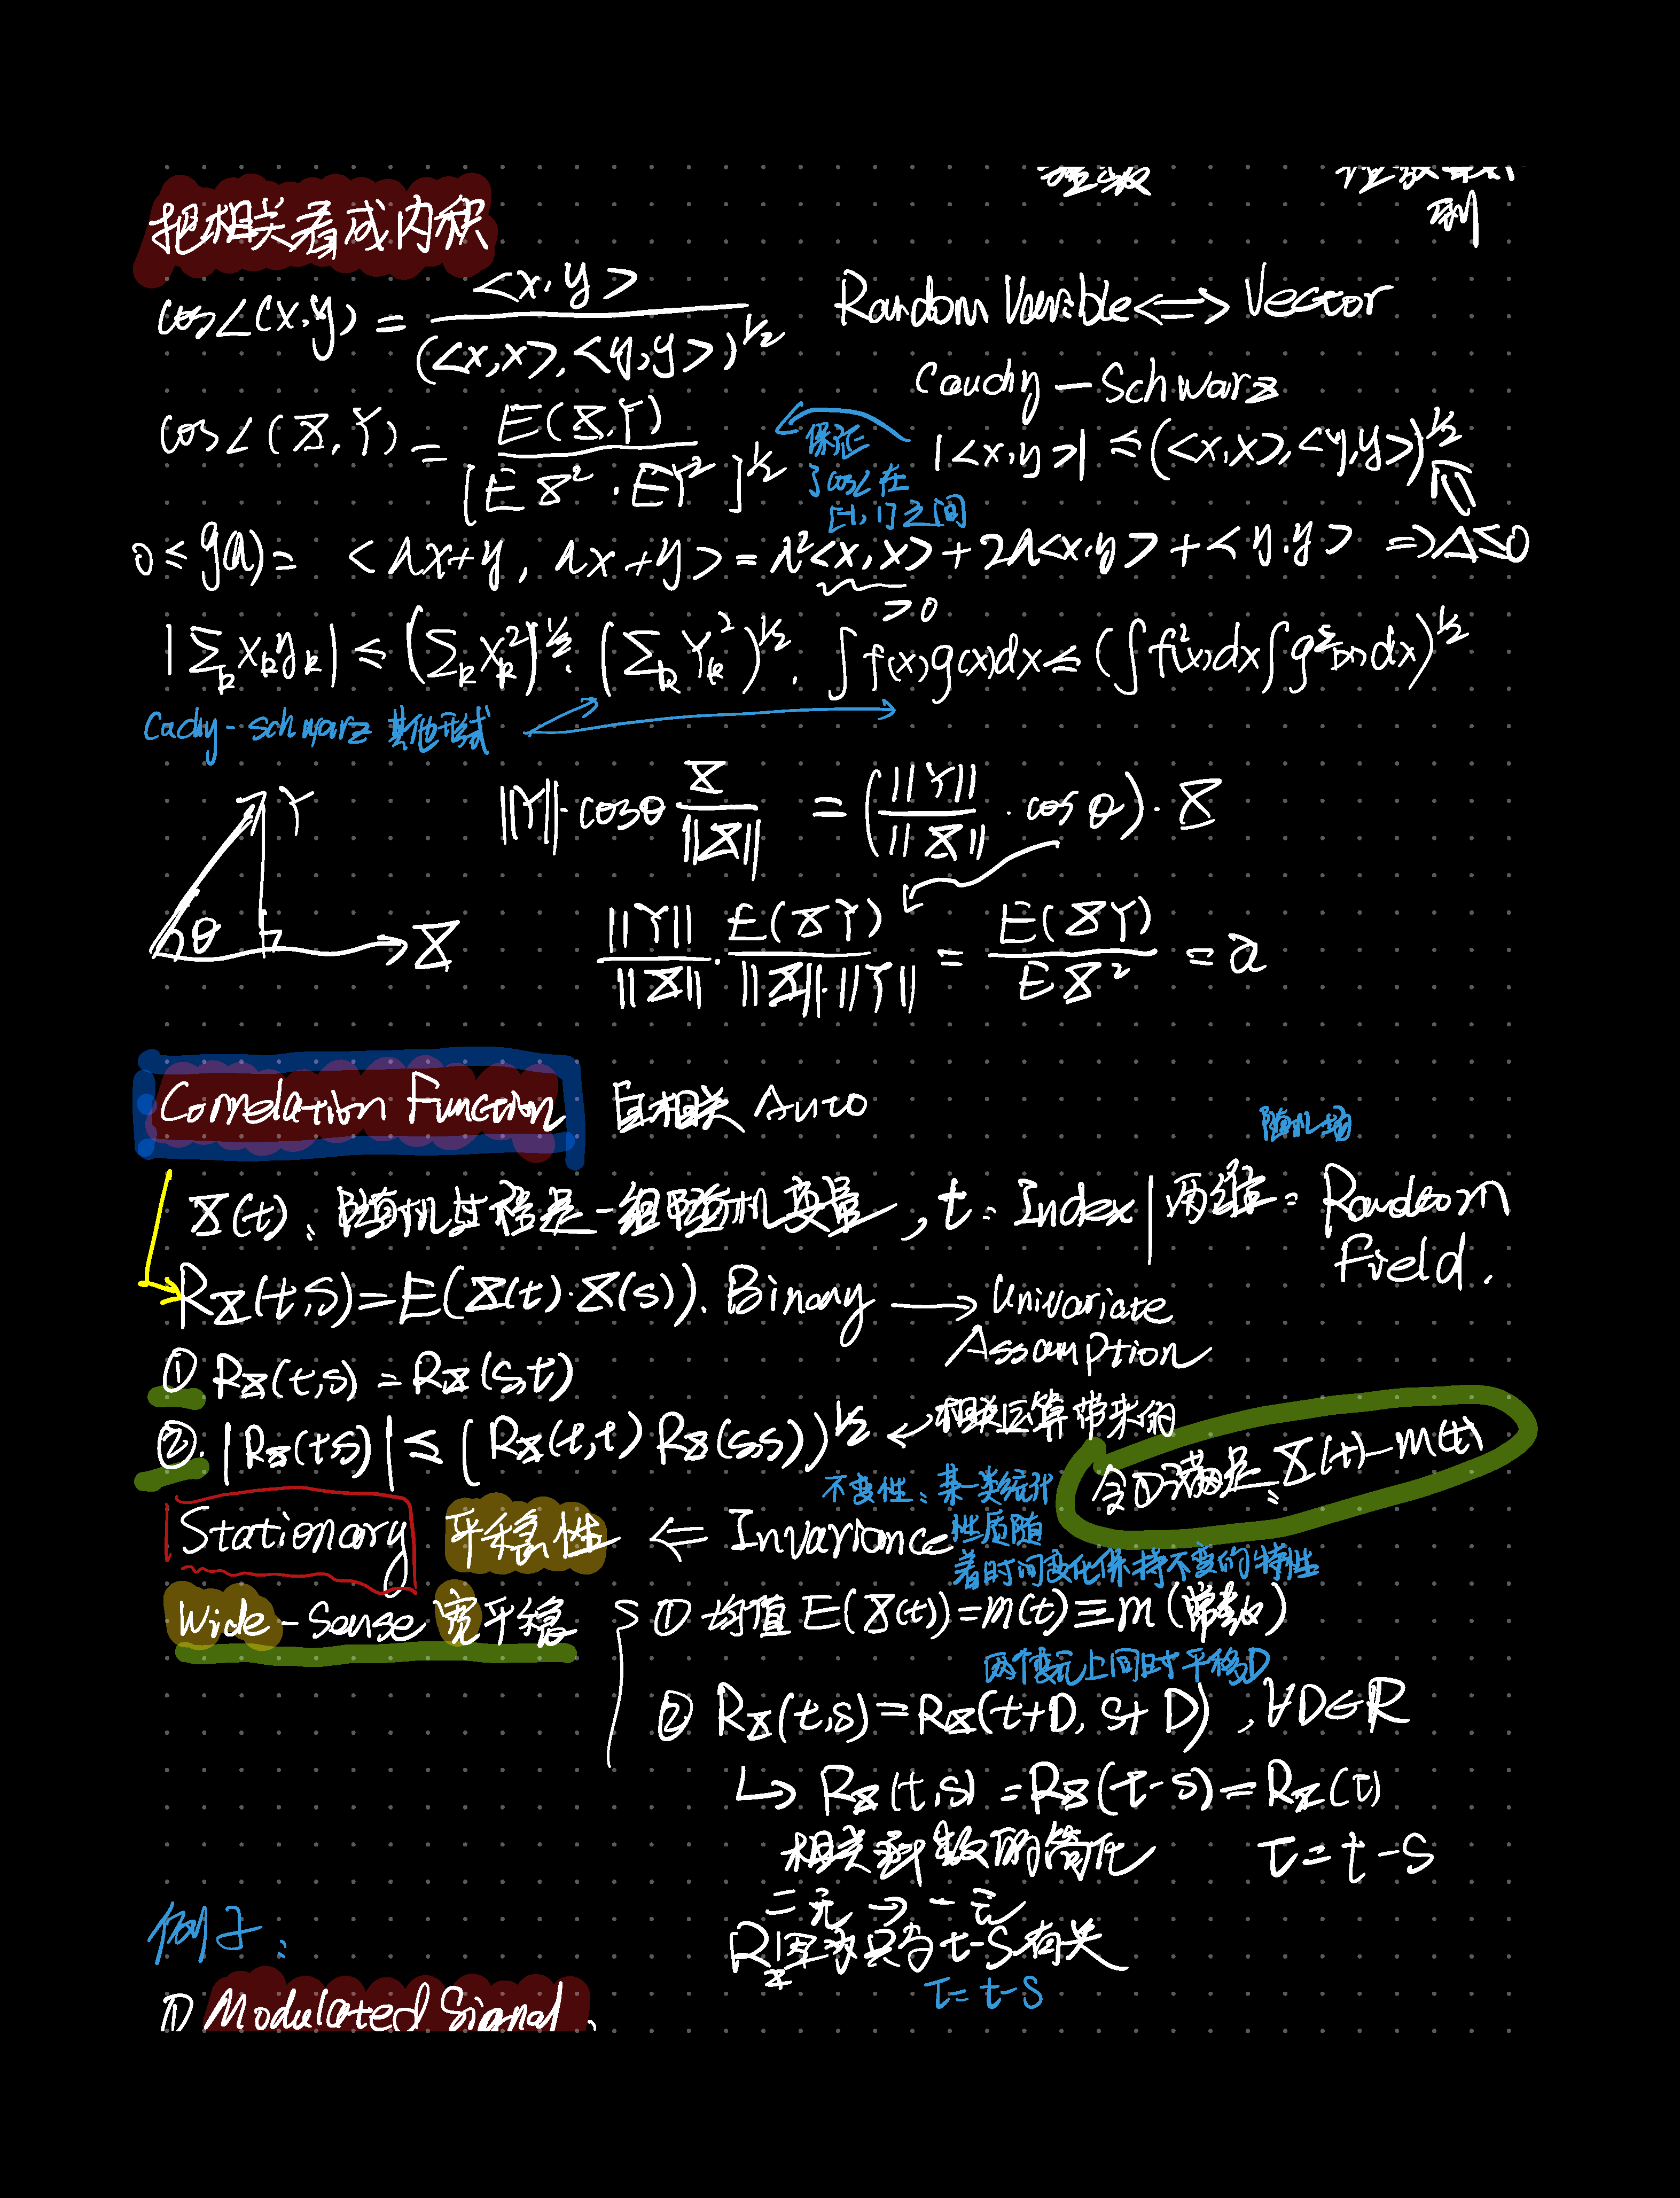 把相关看成内积
cos∠(x,y) = <x,y> / (<x,x>,<y,y>)^1/2
Random Variable <=> Vector
Cauchy-Schwarz
cos∠(X,Y) = E(X,Y) / [EX²·EY²]^1/2
保证
了cos∠在
[-1,1]之间
|<x,y>| ≤ (<x,x>,<y,y>)^1/2
0 ≤ g(λ) = <λx+y, λx+y> = λ²<x,x> + 2λ<x,y> + <y,y> => Δ≤0
>0
|Σ_k x_k y_k| ≤ (Σ_k x_k²)^1/2 · (Σ_k Y_k²)^1/2 . ∫f(x)g(x)dx ≤ (∫f²(x)dx∫g²(x)dx)^1/2
Cachy-schwarz 其他形式
Y
θ
X
||Y||·cosθ X/||X|| = (||Y||/||X||·cosθ)·X
||Y||/||X|| · E(XY)/(||X||·||Y||) = E(XY)/EX² = a
Correlation Function 自相关 Auto
随机场
X(t): 随机过程是一组随机变量, t: Index | 两维: Random
Field.
R_X(t,s)=E(X(t)·X(s)). Binary → Univariate
Assumption
① R_X(t,s) = R_X(s,t)
②. |R_X(t,s)| ≤ (R_X(t,t) R_X(s,s))^1/2 ← 相关运算带来的
令①满足: X(t)-m(t)
不变性: 某一类统计
性质随
着时间变化保持不变的特性
Stationary 平稳性 ⇐ Invariance
Wide-Sense 宽平稳
① 均值 E(X(t))=m(t)≡m (常数)
两个变元上同时平移D
② R_X(t,s)=R_X(t+D, s+D), ∀D∈R
↳ R_X(t,s) = R_X(t-s) = R_X(τ)
相关函数的简化 τ=t-s
二元 → 一元
R_X 只与t-s有关
τ=t-s
例子:
① Modulated Signal.